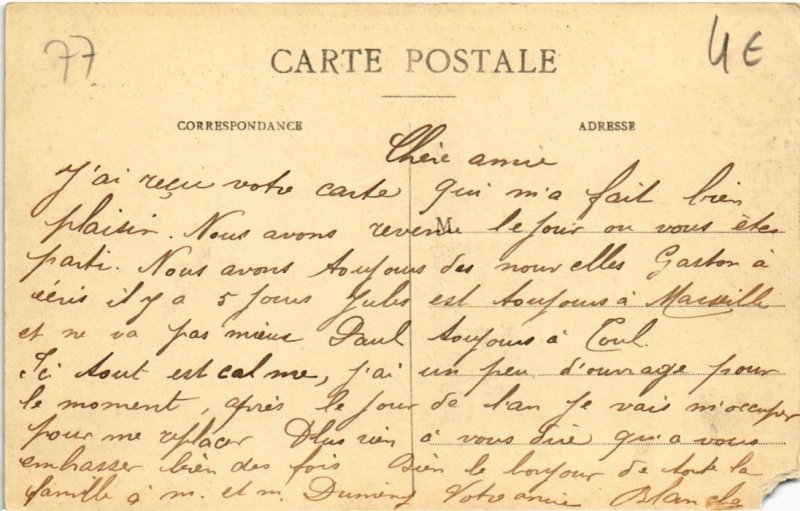 77
4€
CARTE POSTALE
CORRESPONDANCE
ADRESSE
Chère amie
J'ai reçu votre carte qui m'a fait bien
plaisir. Nous avons M le jour ou vous êtes
parti. Nous avons toujours des nouvelles Gaston à
écris il y a 5 jours Jules est toujours à Marseille
et ne va pas mieux Paul toujours à Toul.
Ici tout est calme, j'ai un peu d'ouvrage pour
le moment, après le jour de l'an je vais m'occuper
pour me replacer Plus rien à vous dire qu'a vous
embrasser bien des fois Bien le bonjour de toute la
famille à m. et m. Votre amie Blanche